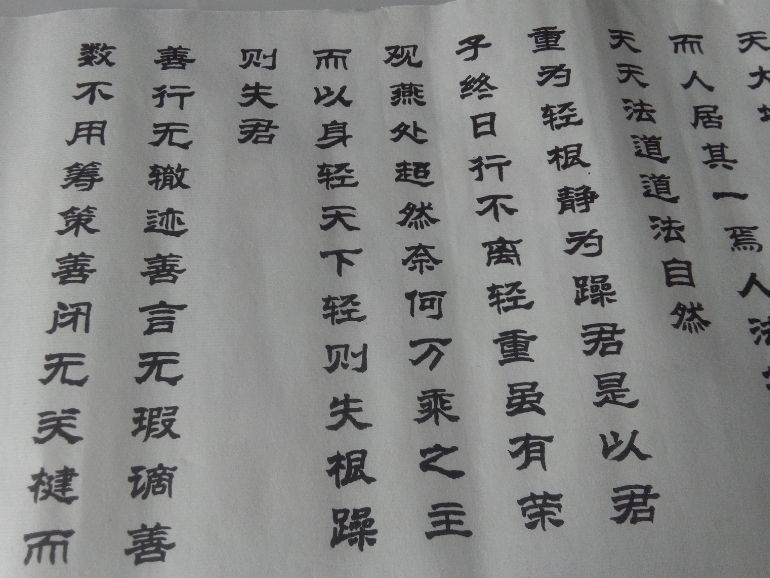 天大地
而人居其一焉人法地
天天法道道法自然
重为轻根静为躁君是以君
子终日行不离轻重虽有荣
观燕处超然奈何万乘之主
而以身轻天下轻则失根躁
则失君
善行无辙迹善言无瑕谪善
数不用筹策善闭无关楗而